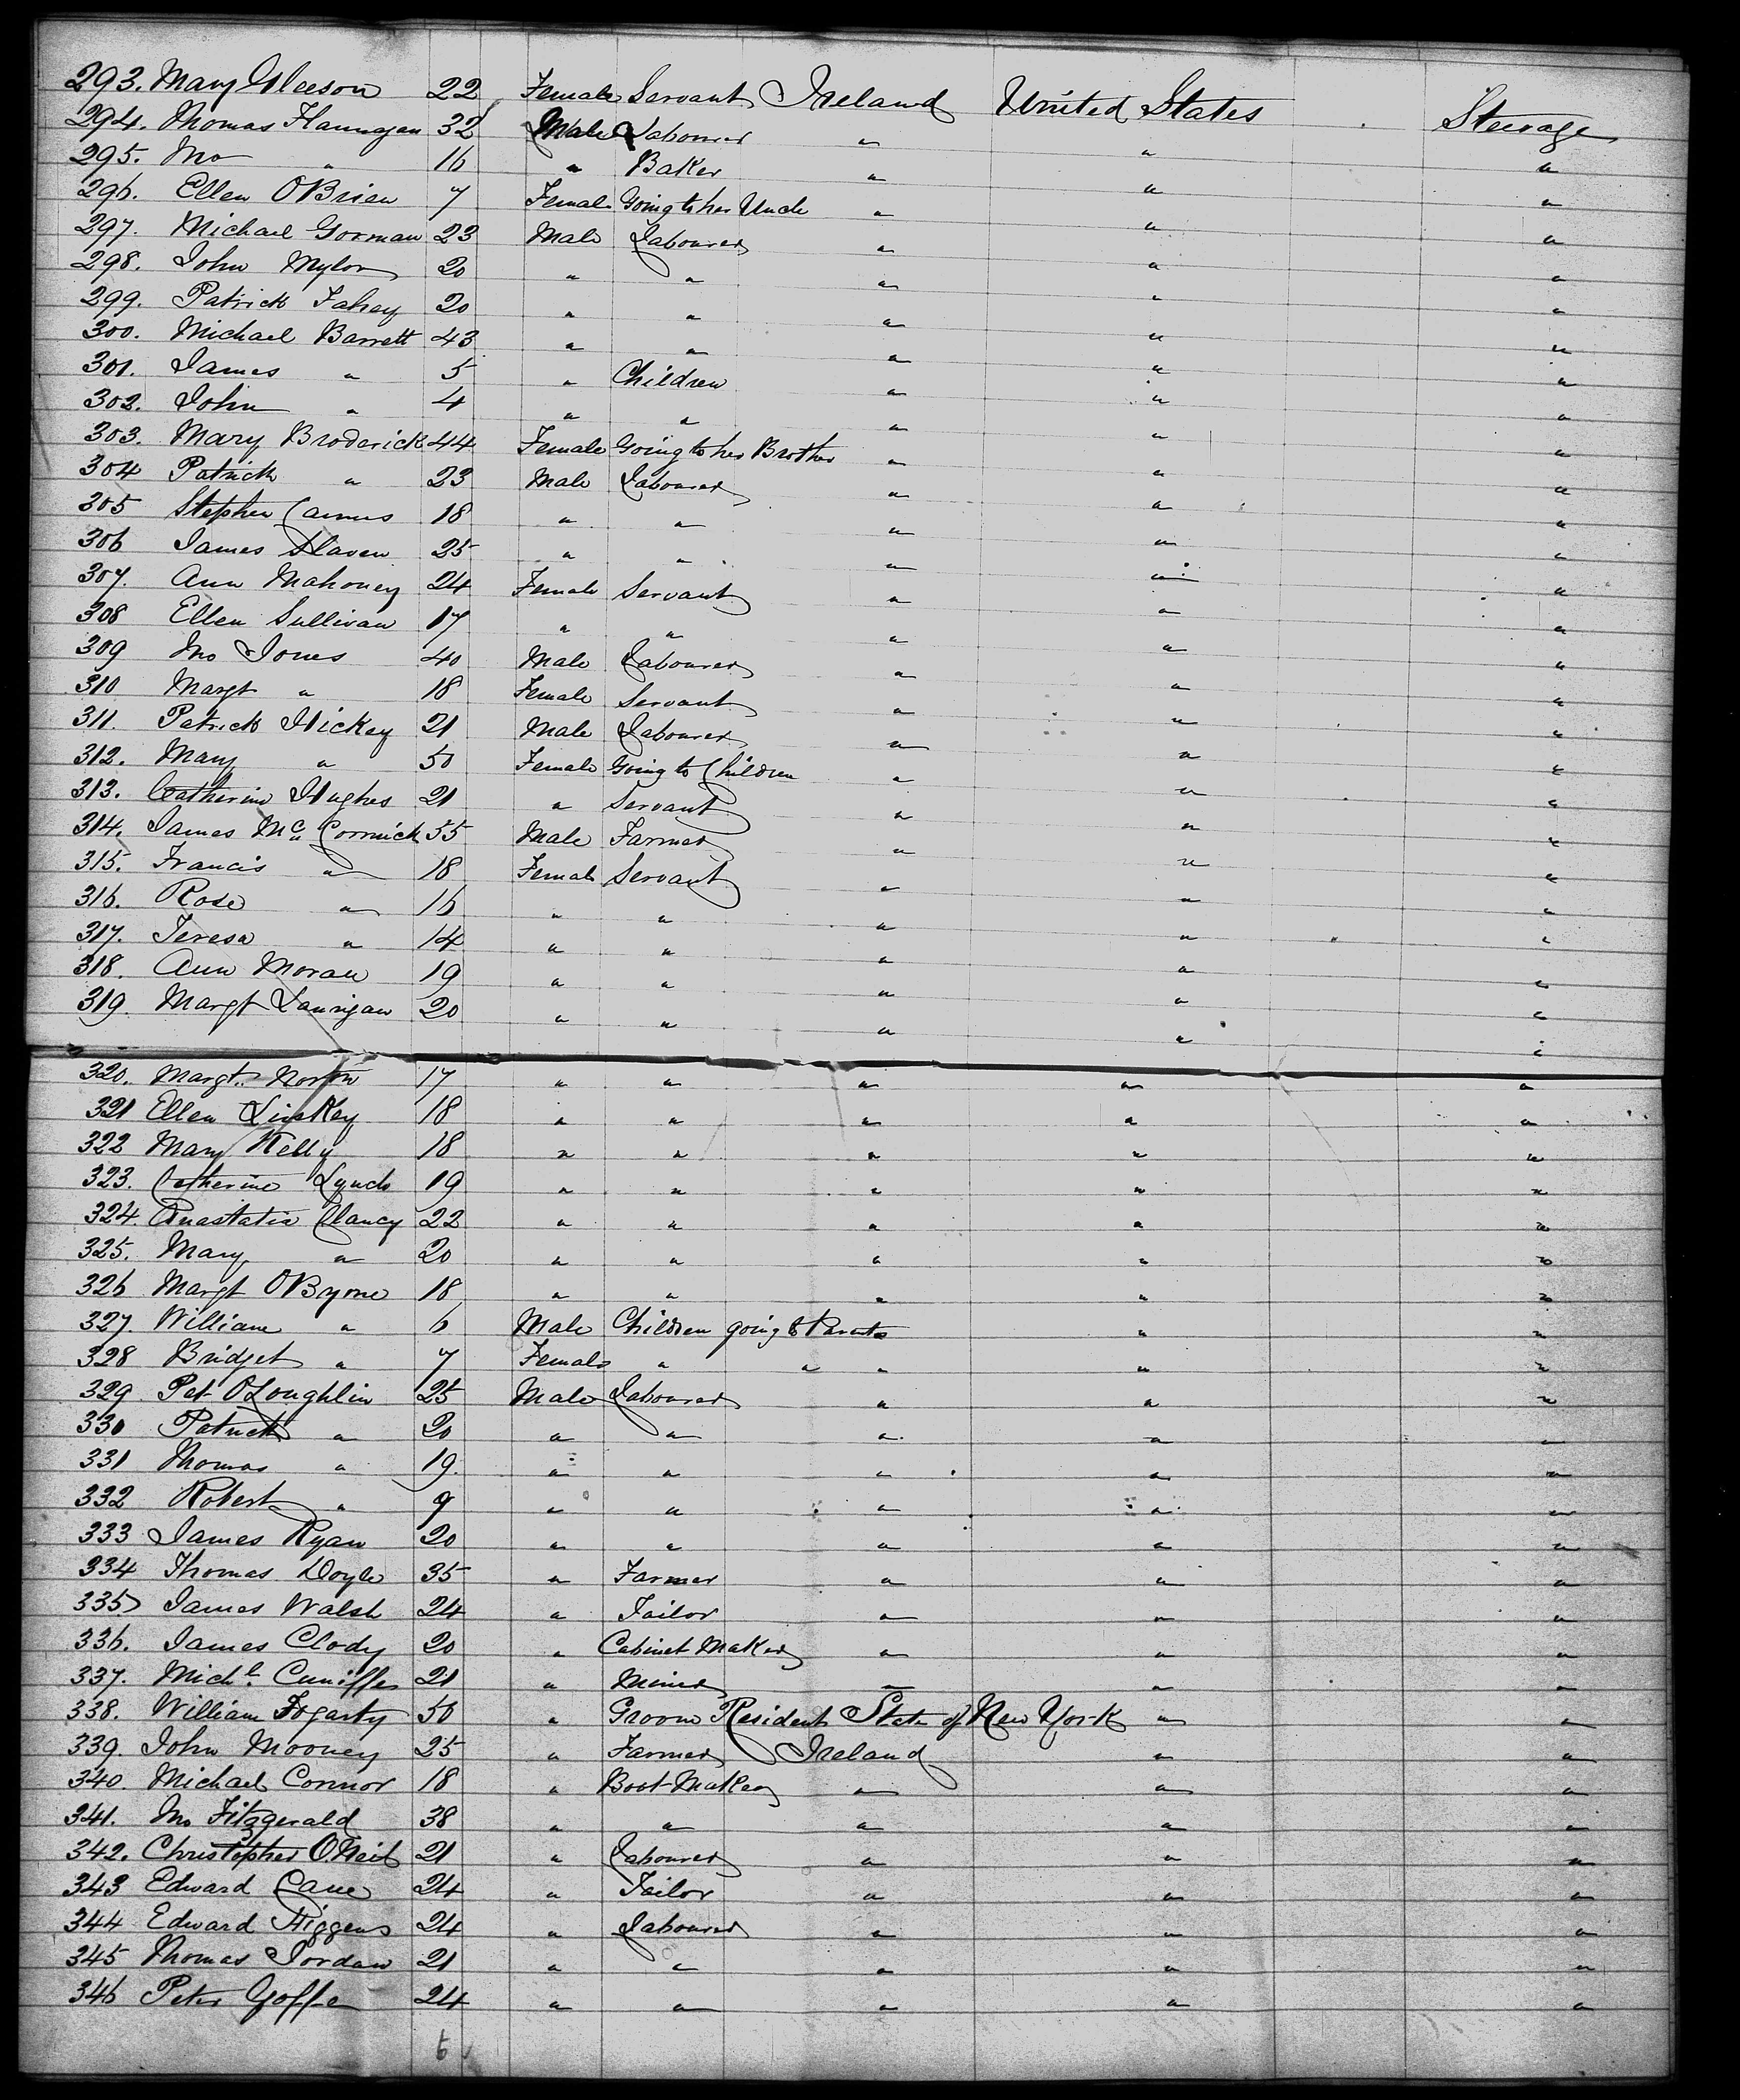 293. Mary Gleeson 22 Female Servant Ireland United States Steerage
294. Thomas Flannagan 32 Male Labourer " " "
295. Jno " 16 " Baker " " "
296. Ellen OBrien 7 Female Going to her Uncle " " "
297. Michael Gorman 23 Male Labourer " " "
298. John Mylor 20 " " " " "
299. Patrick Fahey 20 " " " " "
300. Michael Barrett 43 " " " " "
301. James " 5 " Children " " "
302. John " 4 " " " " "
303. Mary Broderick 44 Female Going to her Brother " " "
304 Patrick " 23 Male Labourer " " "
305 Stephen 18 " " " " "
306 James Slaven 25 " " " " "
307. Ann Mahoney 24 Female Servant " " "
308 Ellen Sullivan 17 " " " " "
309 Jno Jones 40 Male Labourer " " "
310 Margt " 18 Female Servant " " "
311. Patrick Hickey 21 Male Labourer " " "
312. Mary " 50 Female Going to Children " " "
313. Catherine Hughes 21 " Servant " " "
314. James Mc Cormick 55 Male Farmer " " "
315. Francis " 18 Female Servant " " "
316. Rose " 16 " " " " "
317. Teresa " 14 " " " " "
318. Ann Moran 19 " " " " "
319. Margt Lannigan 20 " " " " "
320. Margt. Norton 17 " " " " "
321 Ellen Linskey 18 " " " " "
322 Mary Kelly 18 " " " " "
323. Catherine Lynch 19 " " " " "
324. Anastatia Clancy 22 " " " " "
325. Mary " 20 " " " " "
326 Margt OByrne 18 " " " " "
327. William " 6 Male Children going to Parents " "
328 Bridget " 7 Female " " " " "
329. Pat OLoughlin 25 Male Labourer " " "
330 Patrick " 20 " " " " "
331 Thomas " 19. " " " " "
332 Robert " 9 " " " " "
333 James Ryan 20 " " " " "
334 Thomas Doyle 35 " Farmer " " "
335 James Walsh 24 " Tailor " " "
336. James Clody 20 " Cabinet Maker " " "
337. Michl. Cuniffe 21 " Miner " " "
338. William Fogarty 50 " Groom Resident State of New York " "
339. John Mooney 25 " Farmer Ireland " "
340. Michael Connor 18 " Boot Maker " " "
341. Jno Fitzgerald 38 " " " " "
342. Christopher O.Neil 21 " Labourer " " "
343 Edward Cane 24 " Tailor " " "
344 Edward Higgens 24 " Labourer " " "
345 Thomas Jordan 21 " " " " "
346 Peter Goffe 24 " " " " "
6